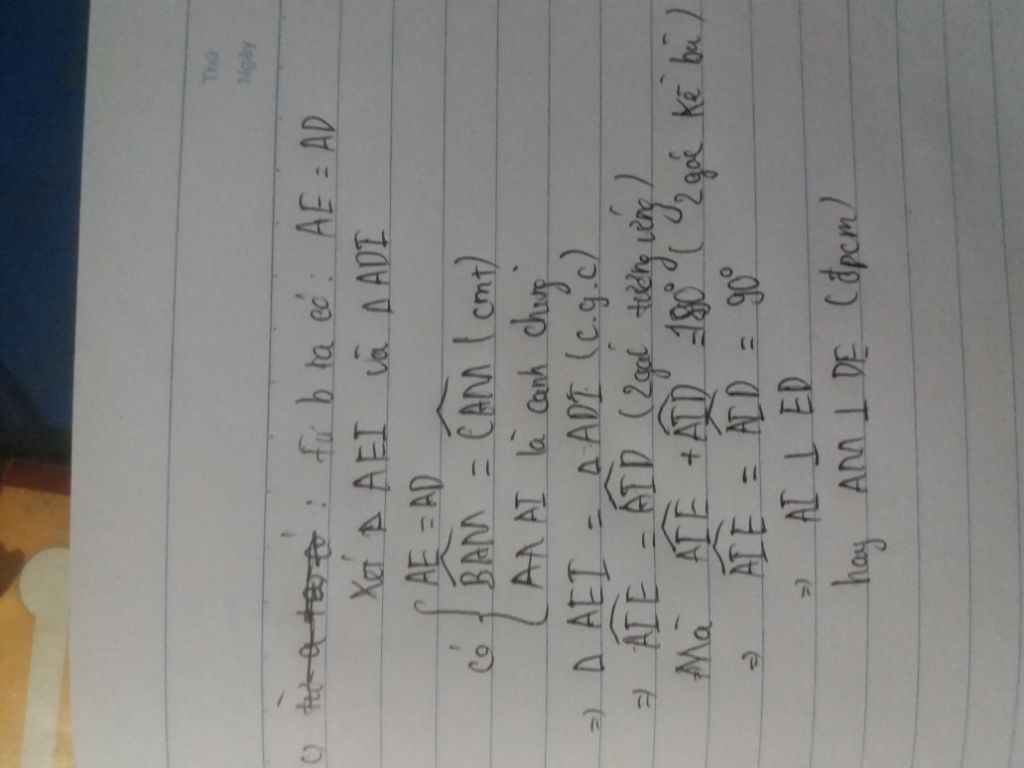 Thứ
Ngày
c) Từ b ta có: AE = AD
Xét Δ AEI và Δ ADI
Có { AE = AD
BAM = CAM (cmt)
AI là cạnh chung
=> Δ AEI = Δ ADI (c.g.c)
=> AIE = AID (2 góc tương ứng)
Mà AIE + AID = 180° (2 góc kề bù)
=> AIE = AID = 90°
=> AI ⊥ ED
hay AM ⊥ DE (đpcm)